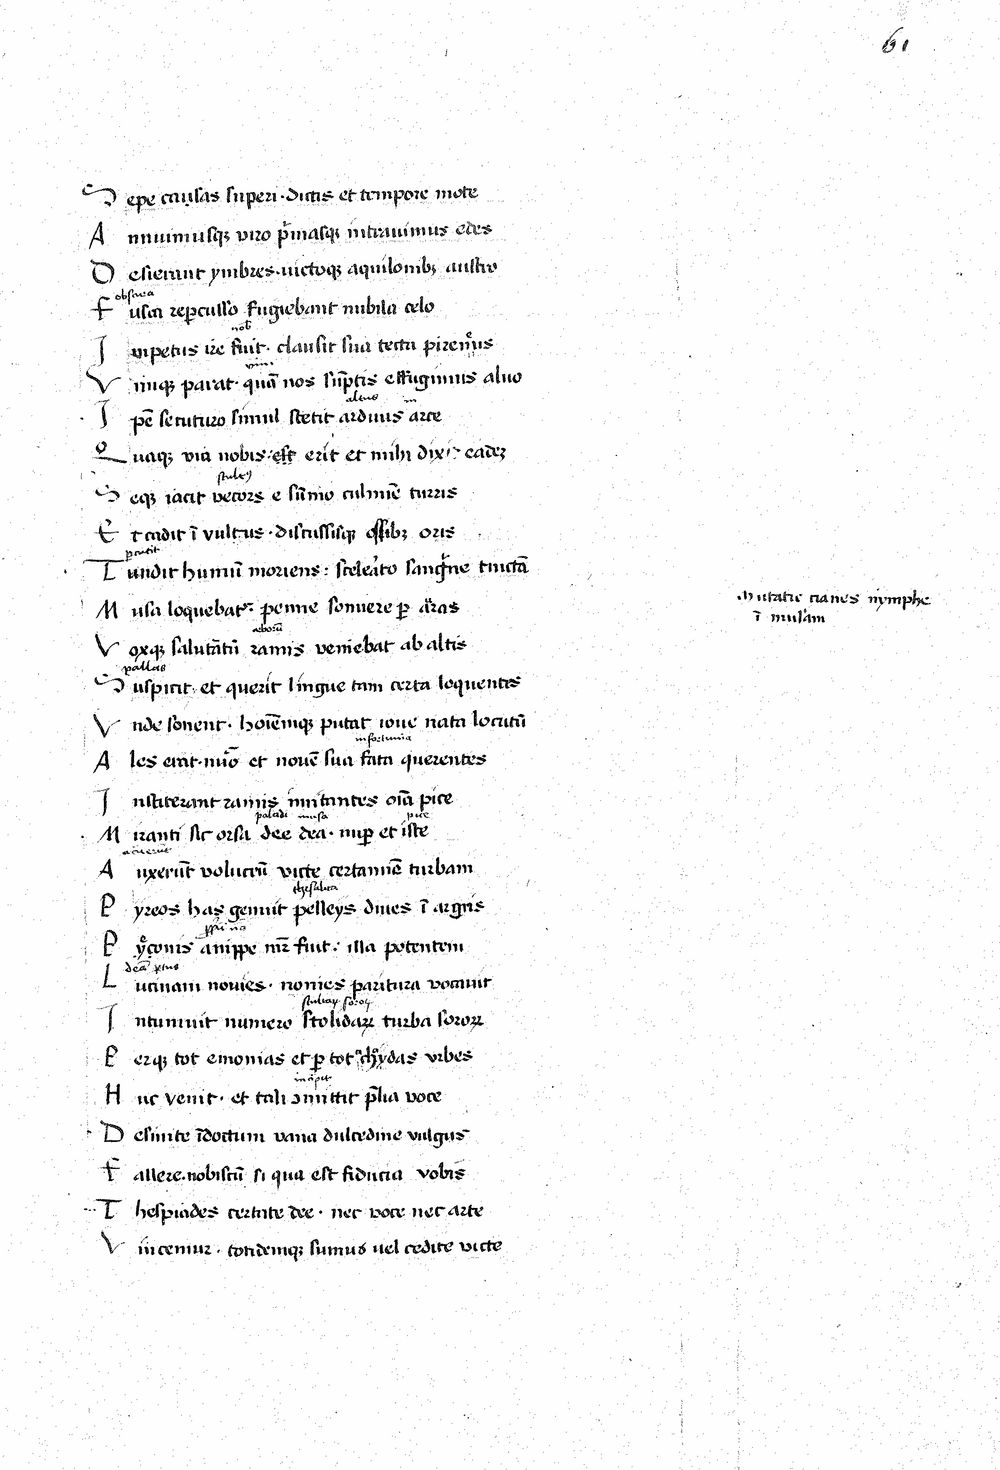 61
Sepe causas superi · dictis et tempore mote
Annuimusqꝫ viro p̄masqꝫ intrauimus edes
Desierant ymbres · uictoqꝫ aquilonibꝫ austro
obscura
Fusca reꝑcusso fugiebant nubila celo
nob
Impetus ire fuit · clausit sua tecta pireneus
Vimqꝫ parat · quā nos sūptis effugimus aluo
altus in
Ipē secuturo similis stetit arduus arce
Quaqꝫ via nobis · est erit et mihi dixit eadeꝫ
Seqꝫ iacit vecors e sūmo culmīe turris
Et cadit ī vultus · discussisqꝫ ossibꝫ oris
ꝑcutit
Tundit humū moriens : scelerato sanguīe tinctā
Musa loquebat᷑ : penne sonuere ꝑ auras
mutatio nymphe
ī musam
arborū
Voxqꝫ salutātū ramis veniebat ab altis
pallas
Suspicit · et querit lingue tam certa loquentes
Vnde sonent · hoīemqꝫ putat ioue nata locutū
infortunia
Ales erat · nūo et nouē sua fata querentes
Institerant ramis imitantes oīa pice
paladi musa pice
Miranti sic orsa dee dea · nuꝑ et iste
Auxerūt volucrū victe certamīe turbam
Pyreos has genuit pelleys diues ī aruis
Peonis anippe mr̄ fuit : illa potentem
Lucinam nouies · nonies paritura vocauit
Intumuit numero stolidaꝝ turba soroꝝ
Perqꝫ tot emonias et ꝑ tot achaydas vrbes
incipit
Huc venit · et tali ꝯmittit p̄lia voce
Desinite īdoctum vana dulcedine vulgus
Fallere · nobiscū si qua est fiducia vobis
Thespiades certate dee · nec voce nec arte
Vincemur · totidemqꝫ sumus uel cedite victe